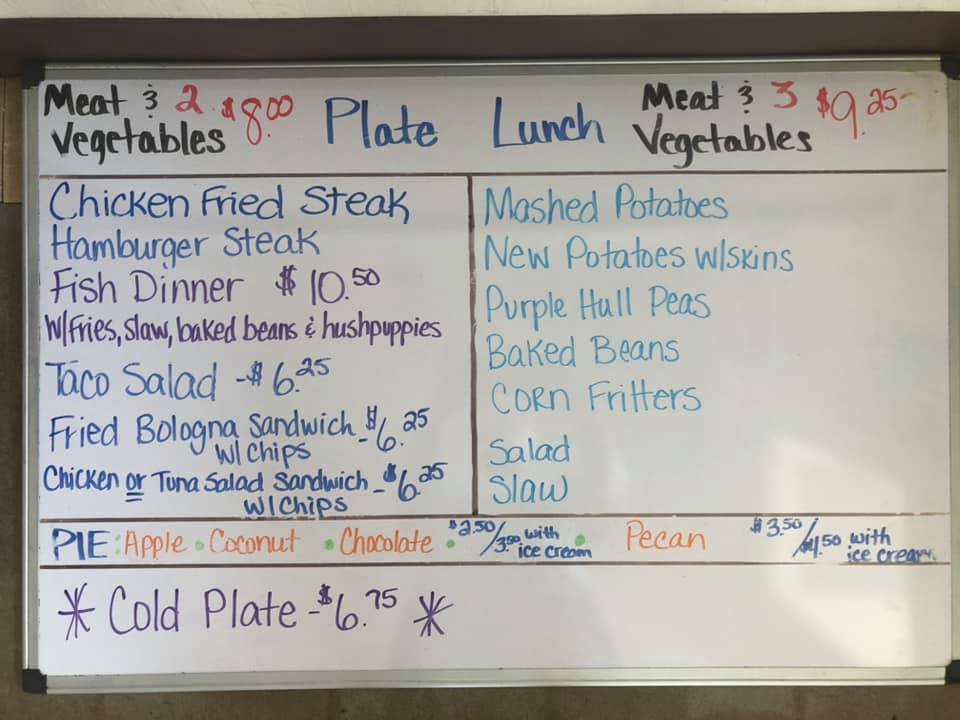 Meat & 2 $8.00
Vegetables
Plate Lunch
Meat & 3 $9.25
Vegetables
Chicken Fried Steak
Hamburger Steak
Fish Dinner $10.50
W/Fries, slaw, baked beans & hushpuppies
Taco Salad - $6.25
Fried Bologna Sandwich - $6.25
W/ Chips
Chicken or Tuna Salad Sandwich - $6.25
W/ Chips
Mashed Potatoes
New Potatoes w/skins
Purple Hull Peas
Baked Beans
Corn Fritters
Salad
Slaw
PIE: Apple • Coconut • Chocolate • $2.50/3.50 with ice cream • Pecan $3.50/$4.50 with ice cream
* Cold Plate - $6.75 *